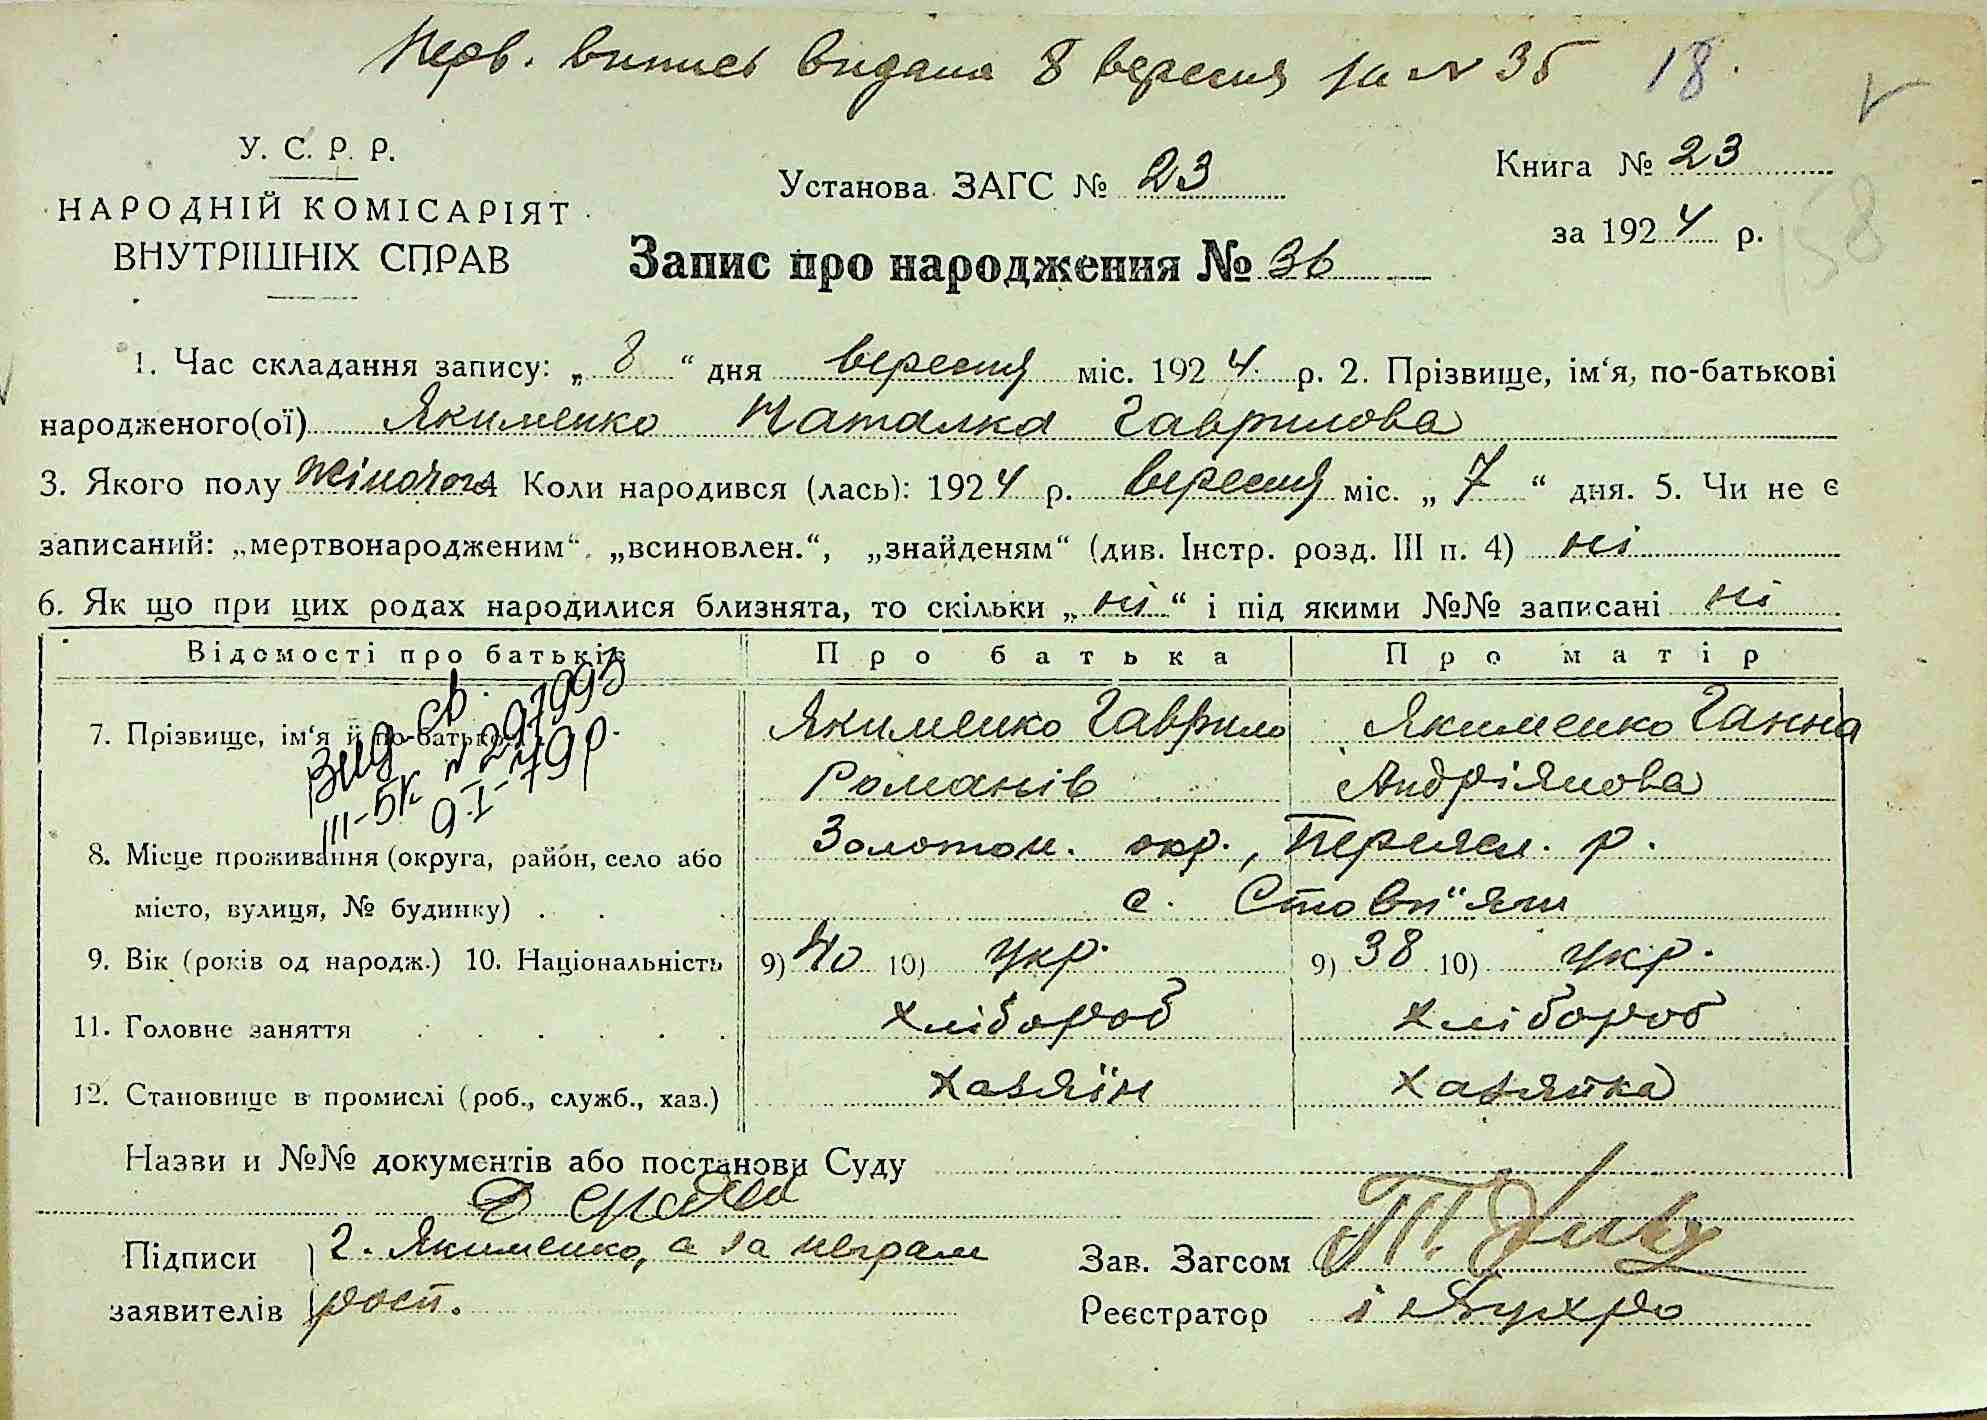 Перв. випись видана 8 вересня за № 35 18.
У. С. Р. Р.
НАРОДНІЙ КОМІСАРІЯТ
ВНУТРІШНІХ СПРАВ
Установа ЗАГС № 23
Книга № 23
за 1924 р.
158
Запис про народження № 36
1. Час складання запису: „ 8 “ дня вересня міс. 1924 р. 2. Прізвище, ім‘я, по-батькові
народженого(ої) Якименко Наталка Гаврилова
3. Якого полу жіночого 4 Коли народився (лась): 1924 р. вересня міс. „ 7 “ дня. 5. Чи не є
записаний: „мертвонародженим“, „всиновлен.“, „знайденям“ (див. Інстр. розд. III п. 4) ні
6. Як що при цих родах народилися близнята, то скільки „ ні “ і під якими №№ записані ні
Відомості про батьків Про батька Про матір
7. Прізвище, ім‘я й по-батькові Якименко Гаврило Якименко Ганна
Романів Андріянова
Вид. св.
III-БК № 297993
9-I-79р.
8. Місце проживання (округа, район, село або Золотон. окр., Переясл. р.
місто, вулиця, № будинку) . . . с. Стовп"яги
9. Вік (років од народж.) 10. Національність 9) 40 10) Укр. 9) 38 10) Укр.
11. Головне заняття . . . . . . хлібороб хлібороб
12. Становище в промислі (роб., служб., хаз.) хазяїн хазяйка
Назви и №№ документів або постанови Суду
Підписи Г. Якименко, а за неграм
заявителів росп.
Зав. Загсом
Реєстратор